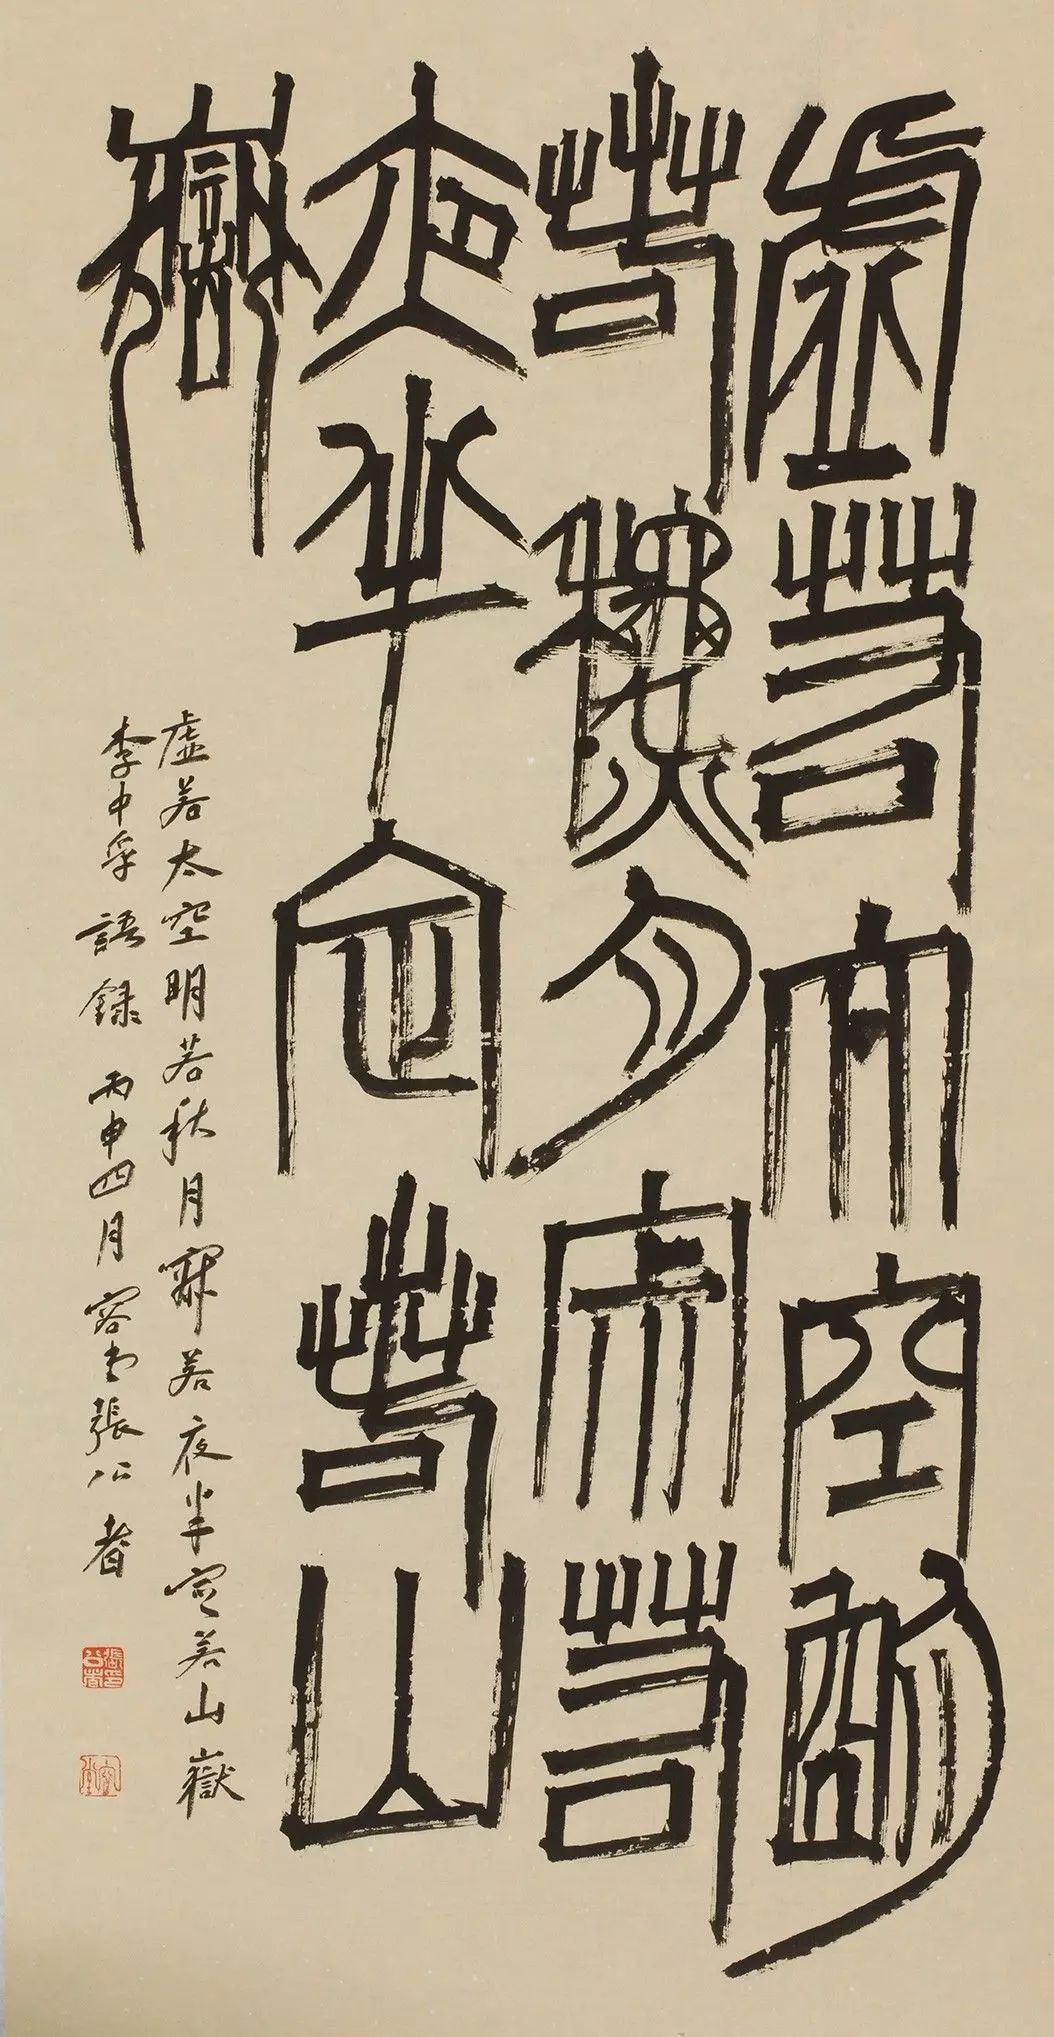 虛若太空明
若秋月寂若
夜半定若山
嶽
虛若太空明若秋月寂若夜半定若山嶽
李中孚語錄 丙申四月容堂張公者
張印公者
容堂